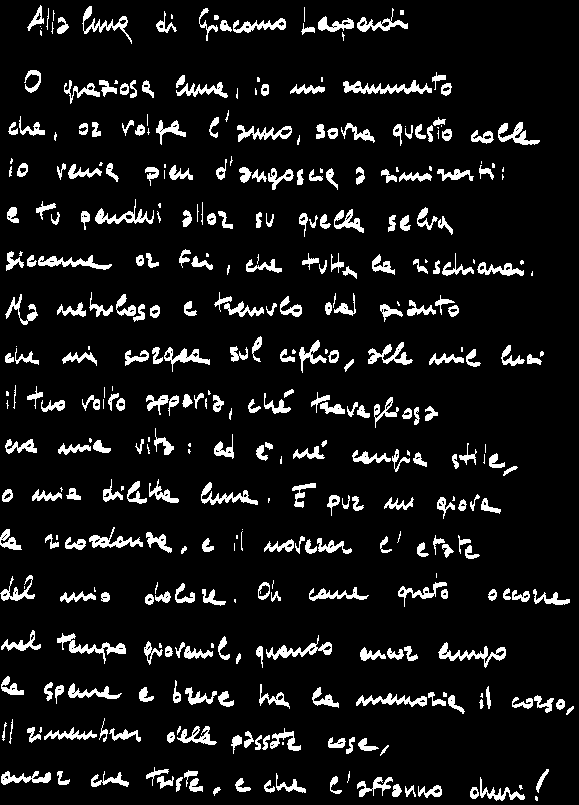 Alla luna di Giacomo Leopardi
O graziosa luna, io mi rammento
che, or volge l'anno, sovra questo colle
io venia pien d'angoscia a rimirarti:
e tu pendevi allor su quella selva
siccome or fai, che tutta la rischiarai.
Ma nebuloso e tremulo dal pianto
che mi sorgea sul ciglio, alle mie luci
il tuo volto apparia, ché travagliosa
era mia vita: ed è, né cangia stile,
o mia diletta luna. E pur mi giova
la ricordanza, e il noverar l'etate
del mio dolore. Oh come grato occorre
nel tempo giovanil, quando ancor lungo
la speme e breve ha la memoria il corso,
il rimembrar delle passate cose,
ancor che triste, e che l'affanno duri!